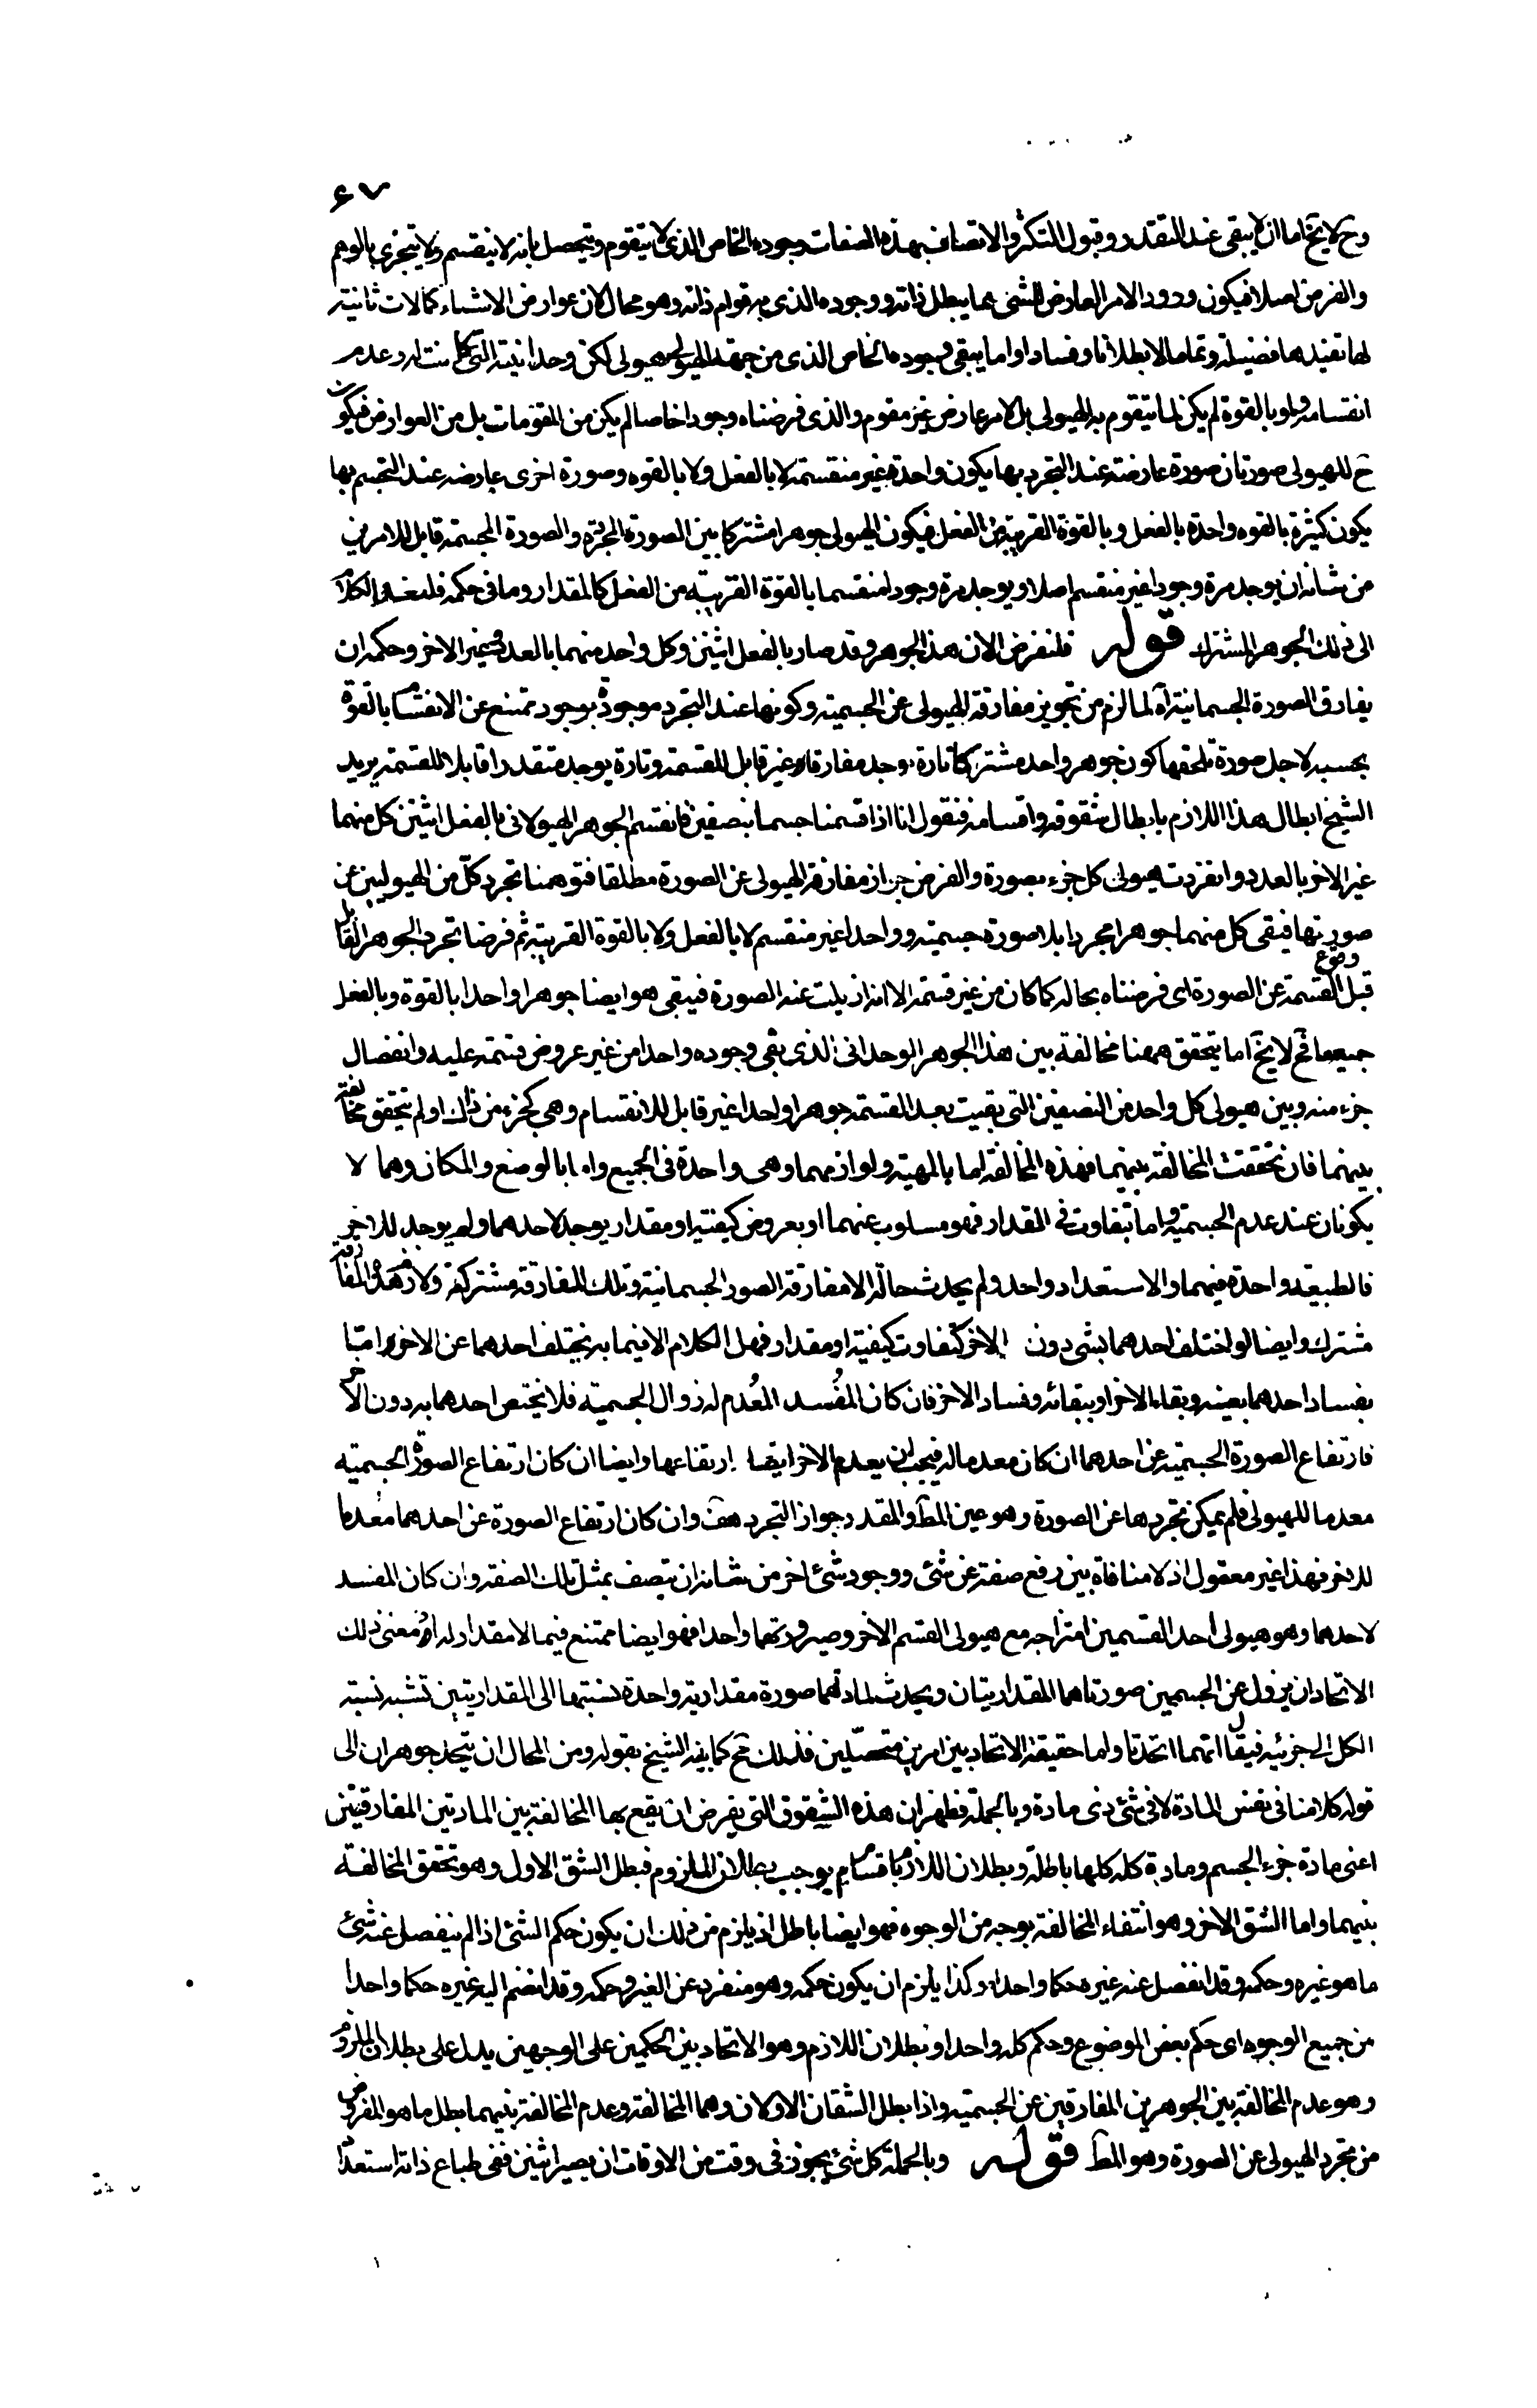 ٦٧
وح لا يخ اما ان لا يبقى عند التقدر وقبول التكثر والاتصاف بهذه الصفات وجوده الخاص الذى لا يتقوم ويتحصل بانه لا ينقسم ولا يتجزى بالوهم
والفرض اصلا فيكون ورود الامر العارض للشئ مما يبطل ذاته ووجوده الذى به قوام ذاته وهو محال لان عوارض الاشياء كمالات ثانيته
لها تفيدها فضيلة وتماما لا بطلانا وفسادا واما يبقى وجوده الخاص الذى من جهة الهيولى هيولى لكن وحدانيته التى كانت له وعدم
انقسامه ولو بالقوة لم يكن لما يتقوم به الهيولى بل لامر عارض غير مقوم والذى فرضناه وجودا خاصا لم يكن من المقومات بل من العوارض فيكون
ح للهيولى صورتان صورة عارضة عند التجرد بها يكون واحدة غير منقسمة لا بالفعل ولا بالقوه وصورة اخرى عارضه عند التجسم بها
يكون كثيرة بالقوه واحدة بالفعل وبالقوة القريبة من الفعل فيكون الهيولى جوهرا مشتركا بين الصورة المجردة والصورة الجسمية قابل للامرين
من شانه ان يوجد مرة وجودا غير منقسم اصلا ويوجد مرة وجودا منقسما بالقوة القريبة من الفعل كالمقدار وما فى حكمه فلنعد الكلام
الى ذلك الجوهر المشترك قوله فلنفرض الان هذا الجوهر وقد صار بالفعل اثنين وكل واحد منهما بالعدد غير الاخر وحكمه ان
يفارق الصورة الجسمانية آه لما لزم من تجويز مفارقة الهيولى عن الجسمية وكونها عند التجرد موجودة بوجود تمتنع عن الانقسام بالقوة
بحسبه لاجل صورة تلحقها كون جوهر واحد مشتركا تارة يوجد مفارقا وغير قابل للقسمة وتارة يوجد متقدرا قابلا للقسمة يريد
الشيخ ابطال هذا اللازم بابطال شقوقه واقسامه فنقول انا اذا قسمنا جسما بنصفين فانقسم الجوهر الهيولانى بالفعل اثنين كل منهما
غير الاخر بالعدد وانفردت هيولى كل جزء بصورة والفرض جواز مفارقة الهيولى عن الصورة مطلقا فتوهمنا تجرد كل من الهيوليين عن
صورتها فيبقى كل منهما جوهرا مجردا بلا صورة جسمية وواحدا غير منقسم لا بالفعل ولا بالقوة القريبة ثم فرضنا تجرد الجوهر القابل
قبل وقوع القسمة عن الصورة اى فرضناه بحاله كما كان من غير قسمة الا انه ازيلت عنه الصورة فيبقى هو ايضا جوهرا واحدا بالقوة وبالفعل
جميعا فح لا يخ اما يتحقق ههنا مخالفة بين هذا الجوهر الوحدانى الذى بقى وجوده واحدا من غير عروض قسمة عليه وانفصال
جزء منه وبين هيولى كل واحد من النصفين التى بقيت بعد القسمة جوهرا واحدا غير قابل للانقسام وهى كجزء من ذلك او لم يتحقق مخالفة
بينهما فان تحققت المخالفة بينهما فهذه المخالفة اما بالمهية ولوازمها وهى واحدة فى الجميع واما بالوضع والمكان وهما لا
يكونان عند عدم الجسمية واما بتفاوت فى المقدار فهو مسلوب عنهما او بعروض كيفية او مقدار يوجد لاحدهما ولم يوجد للاخر
فالطبيعة واحدة فيهما والاستعداد واحد ولم يحدث حالة الا مفارقة الصور الجسمانية وتلك المفارقة مشتركة ولازم هذه المفارقة
مشترك وايضا لو اختلف احدهما بشئ دون الاخر كتفاوت كيفية او مقدار فهل الكلام الا فيما به يختلف احدهما عن الاخر واما
بفساد احدهما بعينه وبقاء الاخر او ببقائه وفساد الاخر فان كان المفسد المعدم له زوال الجسمية فلا يختص احدهما به دون الاخر
فارتفاع الصورة الجسمية عن احدهما ان كان معدما له فيجب ان يعدم الاخر ايضا ارتفاعها وايضا ان كان ارتفاع الصورة الجسمية
معدما للهيولى فلم يمكن تجردها عن الصورة وهو عين المط والمقدر جواز التجرد هف وان كان ارتفاع الصورة عن احدهما معدما
للاخر فهذا غير معقول اذ لا منافاة بين رفع صفة عن شئ ووجود شئ اخر من شانه ان يتصف بمثل تلك الصفة وان كان المفسد
لاحدهما وهو هيولى احد القسمين امتزاجه مع هيولى القسم الاخر وصيرورتهما واحدا فهو ايضا ممتنع فيما لا مقدار له اذ معنى ذلك
الاتحاد ان يزول عن الجسمين صورتاهما المقداريتان ويحدث لمادتهما صورة مقدارية واحدة نسبتها الى المقداريتين تشبه نسبة
الكل الى جزئيه فيقال انهما اتحدتا واما حقيقة الاتحاد بين امرين متحصلين فذلك مح كما بينه الشيخ بقوله ومن المحال ان يتحد جوهران الى
قوله كلامنا فى نفس المادة لا فى شئ ذى مادة وبالجملة فظهر ان هذه الشقوق التى يفرض ان يقع بها المخالفة بين المادتين المفارقتين
اعنى مادة جزء الجسم ومادة كله كلها باطلة وبطلان اللازم باقسامه يوجب بطلان الملزوم فبطل الشق الاول وهو تحقق المخالفة
بينهما واما الشق الاخر وهو انتفاء المخالفة بوجه من الوجوه فهو ايضا باطل اذ يلزم من ذلك ان يكون حكم الشئ اذا لم ينفصل عنه شئ
ما هو غيره وحكمه وقد انفصل عنه غيره حكما واحدا وكذا يلزم ان يكون حكمه وهو منفرد عن الغير وحكمه وقد انضم اليه غيره حكما واحدا
من جميع الوجوه اى حكم بعض الموضوع وحكم كله واحدا وبطلان اللازم وهو الاتحاد بين الحكمين على الوجهين يدل على بطلان الملزوم
وهو عدم المخالفة بين الجوهرين المفارقين عن الجسمية واذا بطل الشقان الاولان وهما المخالفة وعدم المخالفة بينهما بطل ما هو المفروض
من تجرد الهيولى عن الصورة وهو المط قوله وبالجملة كل شئ يجوز فى وقت من الاوقات ان يصير اثنين ففى طباع ذاته استعداد